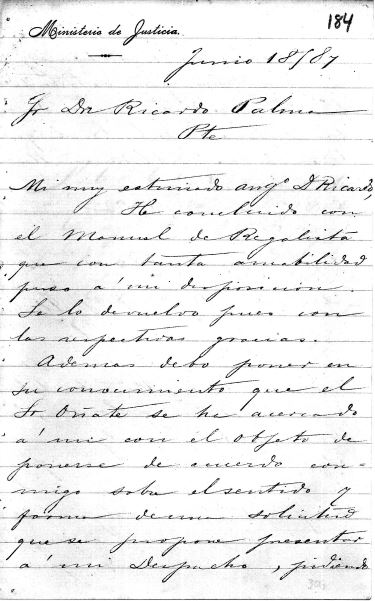 184
Ministerio de Justicia.
Junio 18/87
Sr Dn Ricardo Palma
Pte
Mi muy estimado amgº D Ricardo,
He concluido con
el Manual de Regalista
que con tanta amabilidad
puso a' mi disposicion.
Se lo devuelvo pues con
las respectivas gracias.
Ademas debo poner en
su conocimiento que el
Sr Oñate se ha acercado
a' mi con el objeto de
ponerse de acuerdo con-
migo sobe el sentido y
forma de una solicitud
que se propone presentar
a' mi Despacho, pidiendo